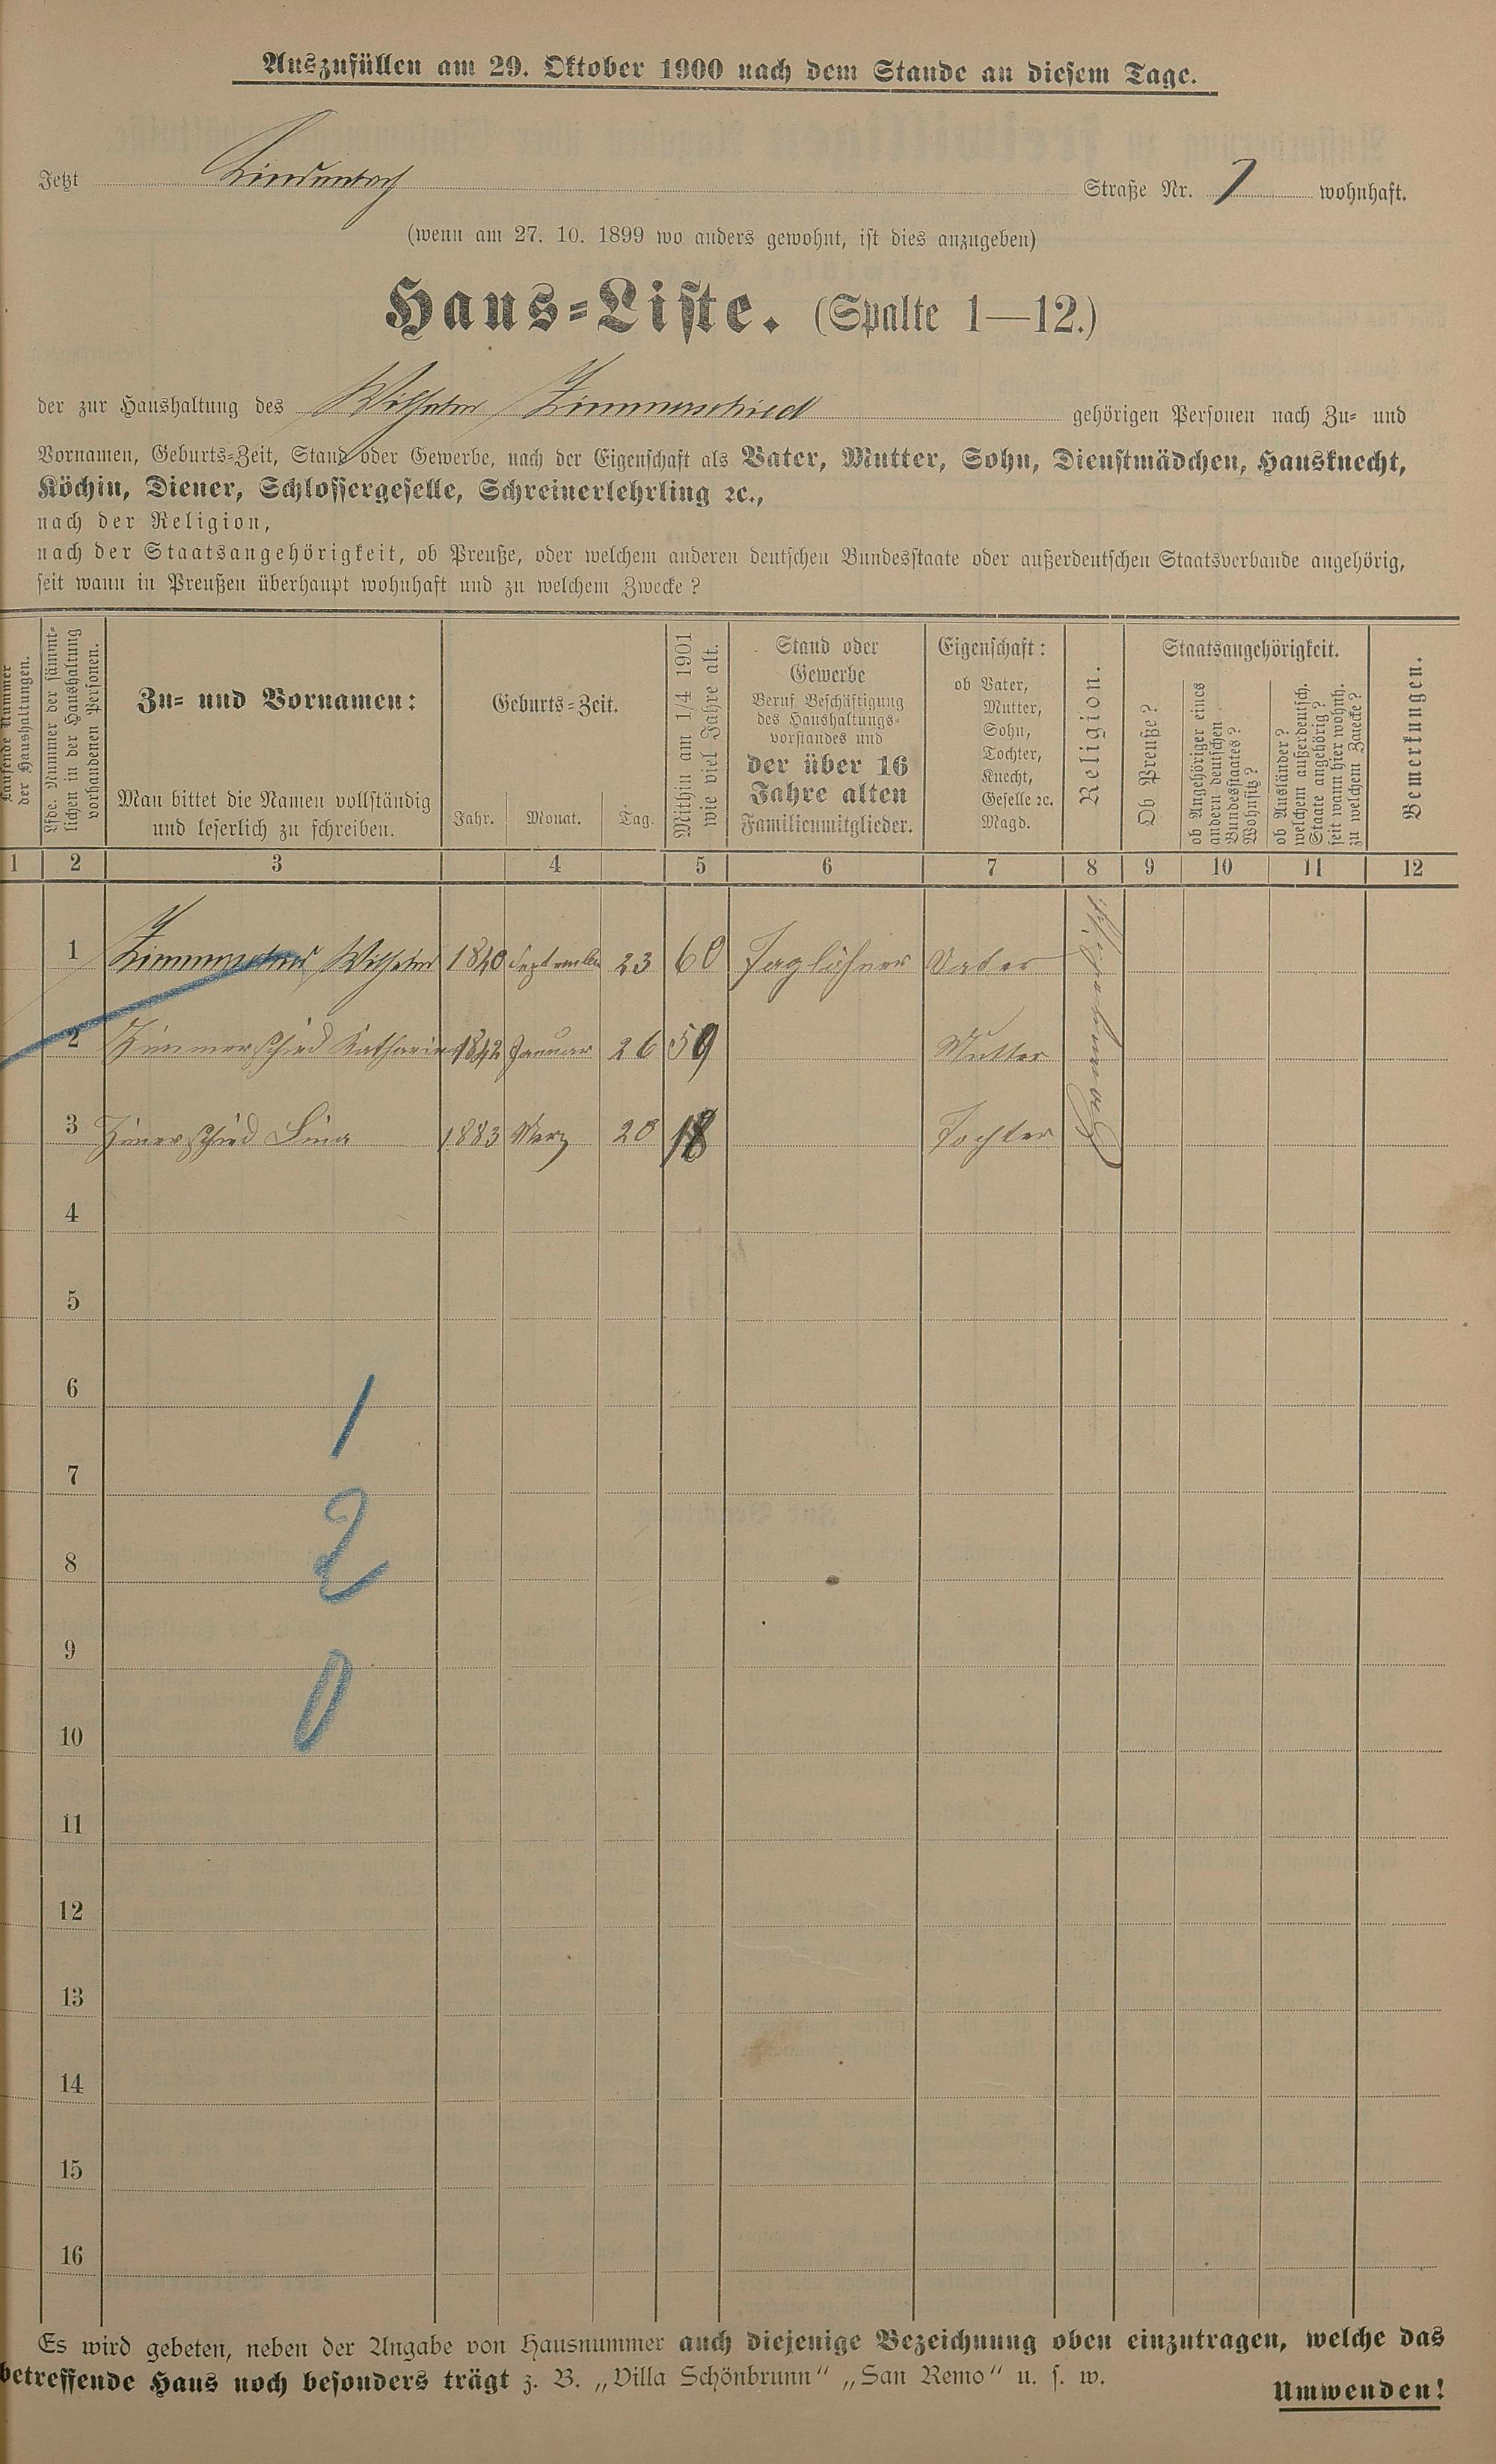 Auszufüllen am 29. Oktober 1900 nach dem Stande an diesem Tage.
Jetzt Lindenbach Straße Nr. 7 wohnhaft.
(wenn am 27. 10. 1899 wo anders gewohnt, ist dies anzugeben)
Haus-Liste. (Spalte 1—12.)
der zur Haushaltung des Wilhelm Zimmerschied gehörigen Personen nach Zu- und
Vornamen, Geburts-Zeit, Stand oder Gewerbe, nach der Eigenschaft als Vater, Mutter, Sohn, Dienstmädchen, Hausknecht,
Köchin, Diener, Schlossergeselle, Schreinerlehrling ꝛc.,
nach der Religion,
nach der Staatsangehörigkeit, ob Preuße, oder welchem anderen deutschen Bundesstaate oder außerdeutschen Staatsverbande angehörig,
seit wann in Preußen überhaupt wohnhaft und zu welchem Zwecke?
Laufende Nummer
der Haushaltungen.
Lfde. Nummer der sämmt-
lichen in der Haushaltung
vorhandenen Personen.
Zu- und Vornamen:
Man bittet die Namen vollständig
und leserlich zu schreiben.
Geburts-Zeit.
Jahr. Monat. Tag.
Mithin am 1/4 1901
wie viel Jahre alt.
Stand oder
Gewerbe
Beruf Beschäftigung
des Haushaltungs-
vorstandes und
der über 16
Jahre alten
Familienmitglieder.
Eigenschaft:
ob Vater,
Mutter,
Sohn,
Tochter,
Knecht,
Geselle ꝛc.
Magd.
Religion.
Staatsangehörigkeit.
Ob Preuße?
ob Angehöriger eines
andern deutschen
Bundesstaates?
Wohnsitz?
ob Ausländer?
welchem außerdeutsch.
Staate angehörig?
seit wann hier wohnh.
zu welchem Zwecke?
Bemerkungen.
1 2 3 4 5 6 7 8 9 10 11 12
1 Zimmerschied Wilhelm 1840 September 23 60 Taglöhner Vater
2 Zimmerschied Katharina 1842 Januar 26 59 Mutter
3 Zimerschied Lina 1883 Merz 20 18 Tochter
4
5
6
1
7
2
8
9
0
10
11
12
13
14
15
16
Es wird gebeten, neben der Angabe von Hausnummer auch diejenige Bezeichnung oben einzutragen, welche das
betreffende Haus noch besonders trägt z. B. „Villa Schönbrunn“ „San Remo“ u. s. w.
Umwenden!